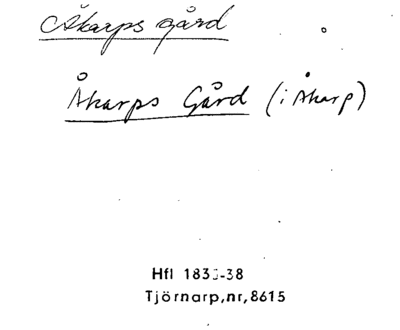 Åkarps gård
Åkarps Gård (i Åkarp)
Hfl 183 -38
Tjörnarp,nr,8615